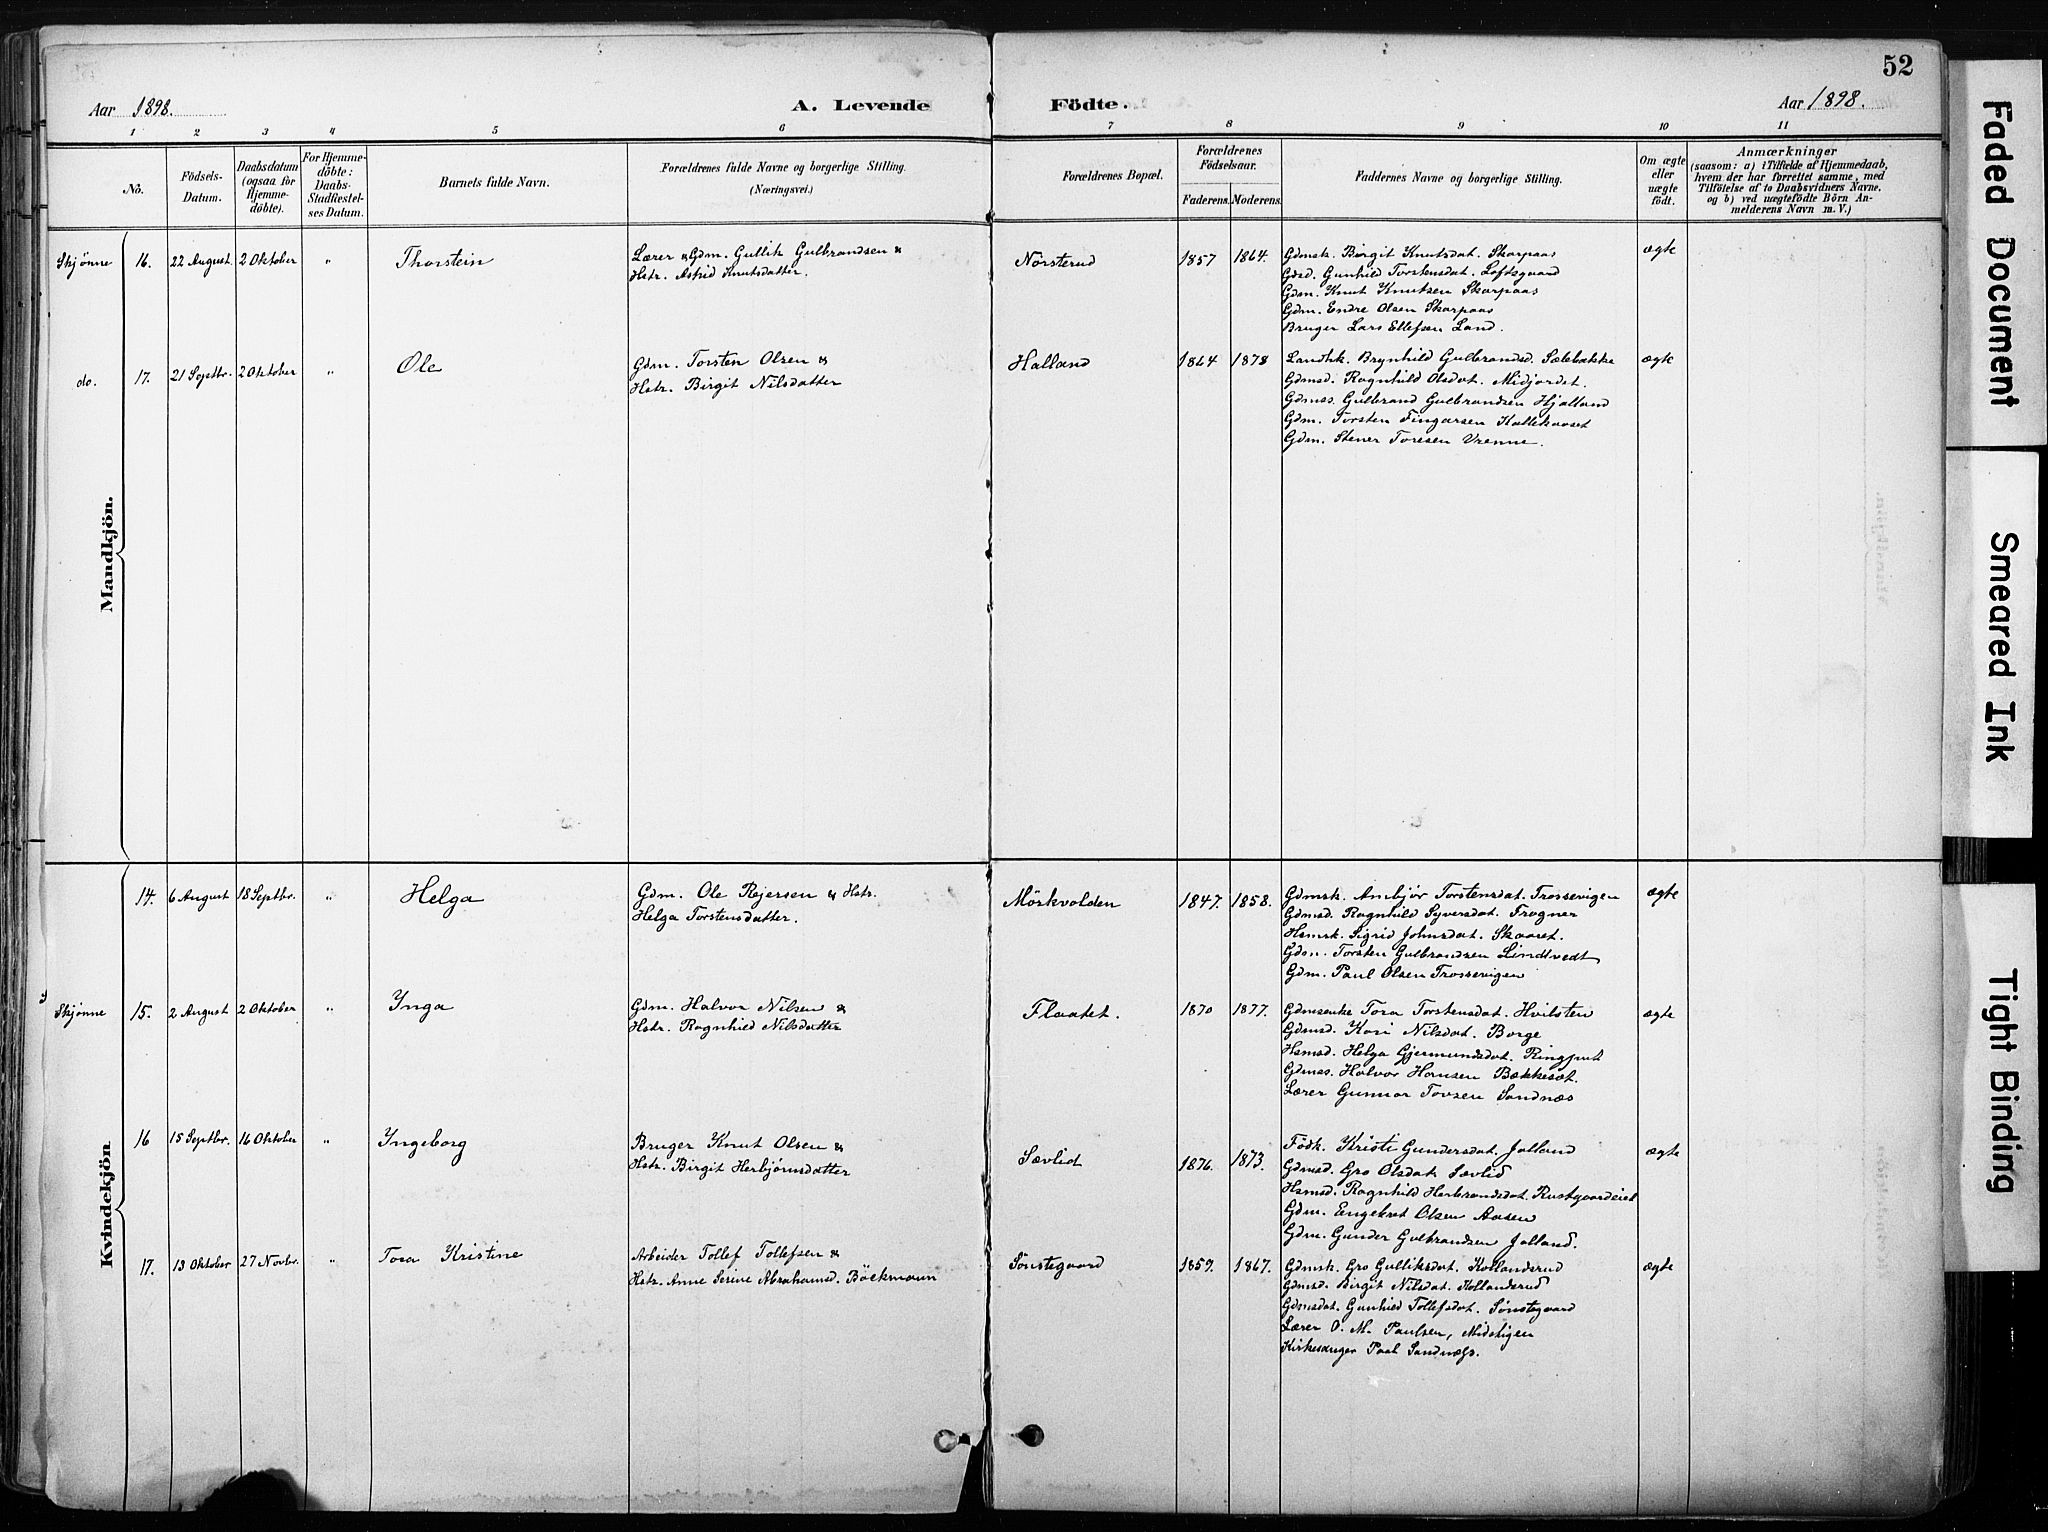 52
Aar 1898.
A. Levende Födte.
Aar 1898.
1 2 3 4 5 6 7 8 9 10 11
No.
Födsels-Datum.
Daabsdatum (ogsaa for Hjemmedöbte).
For Hjemmedöbte: Daabs-Stadfæstelses Datum.
Barnets fulde Navn.
Forældrenes fulde Navne og borgerlige Stilling.
(Næringsvei.)
Forældrenes Bopæl.
Forældrenes Födselsaar.
Faderens. Moderens.
Faddernes Navne og borgerlige Stilling.
Om ægte eller uægte födt.
Anmærkninger
(saasom: a) i Tilfælde af Hjemmedaab, hvem der har forrettet samme, med Tilföielse af to Daabsvidners Navne. og b) ved uægtefödte Börn Anmelderens Navn m. V.)
Mandkjön.
Skjönne 16. 22 August. 2 Oktober " Thorstein
Lærer & Gdm. Gullik Gulbrandsen &
Hstr. Astrid Knutsdatter.
Nörsterud 1857 1864.
Gdmsk. Birgit Knutsdat. Skarpaas
Gdsd. Gunhild Torstensdat. Loftsgaard
Gdm. Knut Knutsen Skarpaas
Gdm. Endre Olsen Skarpaas
Bruger Lars Ellefsen Land.
ægte
do. 17. 21 Septbr. 2 Oktober " Ole
Gdm. Torsten Olsen &
Hstr. Birgit Nilsdatter
Halland 1864 1878
Landhk. Brynhild Gulbrandsd. Sælebakke
Gdmsd. Ragnhild Olsdat. Midjordet.
Gdmss. Gulbrand Gulbrandsen Hjalland
Gdm. Torsten Fingarsen Kallekaaset
Gdm. Stener Toresen Vrenne.
ægte
Kvindekjön
14. 6 August 18 Septbr. " Helga
Gdm. Ole Rejersen & Hstr.
Helga Torstensdatter.
Mörkvolden 1847. 1858.
Gdmsk. Ambjør Torstensdat. Trossevigen
Gdmsd. Ragnhild Syversdat. Frogner
Hsmsk. Sigrid Johnsdat. Skaaret.
Gdm. Torsten Gulbrandsen Lindtvedt
Gdm. Paul Olsen Trossevigen
ægte
Skjönne 15. 2 August 2 Oktober " Ynga
Gdm. Halvor Nilsen &
Hstr. Ragnhild Nilsdatter
Flaatet. 1870 1877.
Gdmsenke Tora Torstensdat. Hvilsten
Gdmsd. Kari Nilsdat. Borge
Hsmsd. Helga Gjermundsdat. Ringput
Gdmss. Halvor Hansen Bækkesat.
Lærer Gunnar Tovsen Sandnæs
ægte
16 15 Septbr. 16 Oktober " Yngeborg
Bruger Knut Olsen &
Hstr. Birgit Herbjørnsdatter
Sævlid 1876. 1873.
Födk. Kristi Gundersdat. Jalland
Gdmsd. Gro Olsdat Sævlid
Hsmsd. Ragnhild Herbrandsdat. Rustgaardeiet
Gdm. Engebret Olsen Aasen
Gdm. Gunder Gulbrandsen Jalland.
ægte
17. 13 Oktober 27 Novbr. " Tora Kristine
Arbeider Tollef Tollefsen &
Hstr. Anne Serine Abrahamsd. Böckmann
Sönstegaard 1859. 1867.
Gdmsk. Gro Gulliksdat. Kollanderud
Gdmsd. Birgit Nilsdat. Kollanderud
Gdmsdat. Gunhild Tollefsdat. Sönstegaard
Lærer O. M. Paulsen, Midstigen
Kirkesanger Paal Sandnæs.
ægte
Faded Document
Smeared Ink
Tight Binding